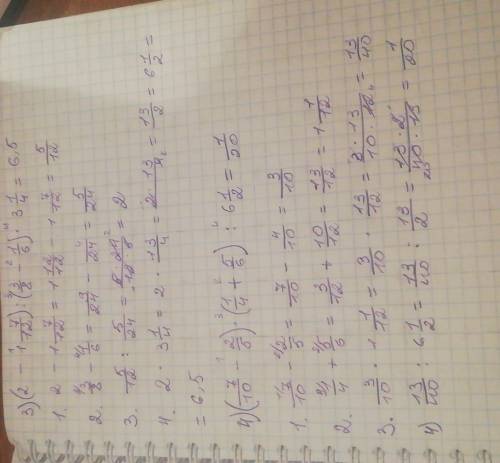 3) (2 - 1 7/12) : (3/8 - 1/6) · 3 1/4 = 6,5
1. 2 - 1 7/12 = 1 12/12 - 1 7/12 = 5/12
2. 3/8 - 1/6 = 9/24 - 4/24 = 5/24
3. 5/12 : 5/24 = 5·24/12·5 = 2
4. 2 · 3 1/4 = 2 · 13/4 = 2·13/4 = 13/2 = 6 1/2 =
= 6,5
4) (7/10 - 2/5) · (1/4 + 5/6) : 6 1/2 = 1/20
1. 7/10 - 2/5 = 7/10 - 4/10 = 3/10
2. 1/4 + 5/6 = 3/12 + 10/12 = 13/12 = 1 1/12
3. 3/10 · 1 1/12 = 3/10 · 13/12 = 3·13/10·12 = 13/40
4) 13/40 : 6 1/2 = 13/40 : 13/2 = 13·2/40·13 = 1/20